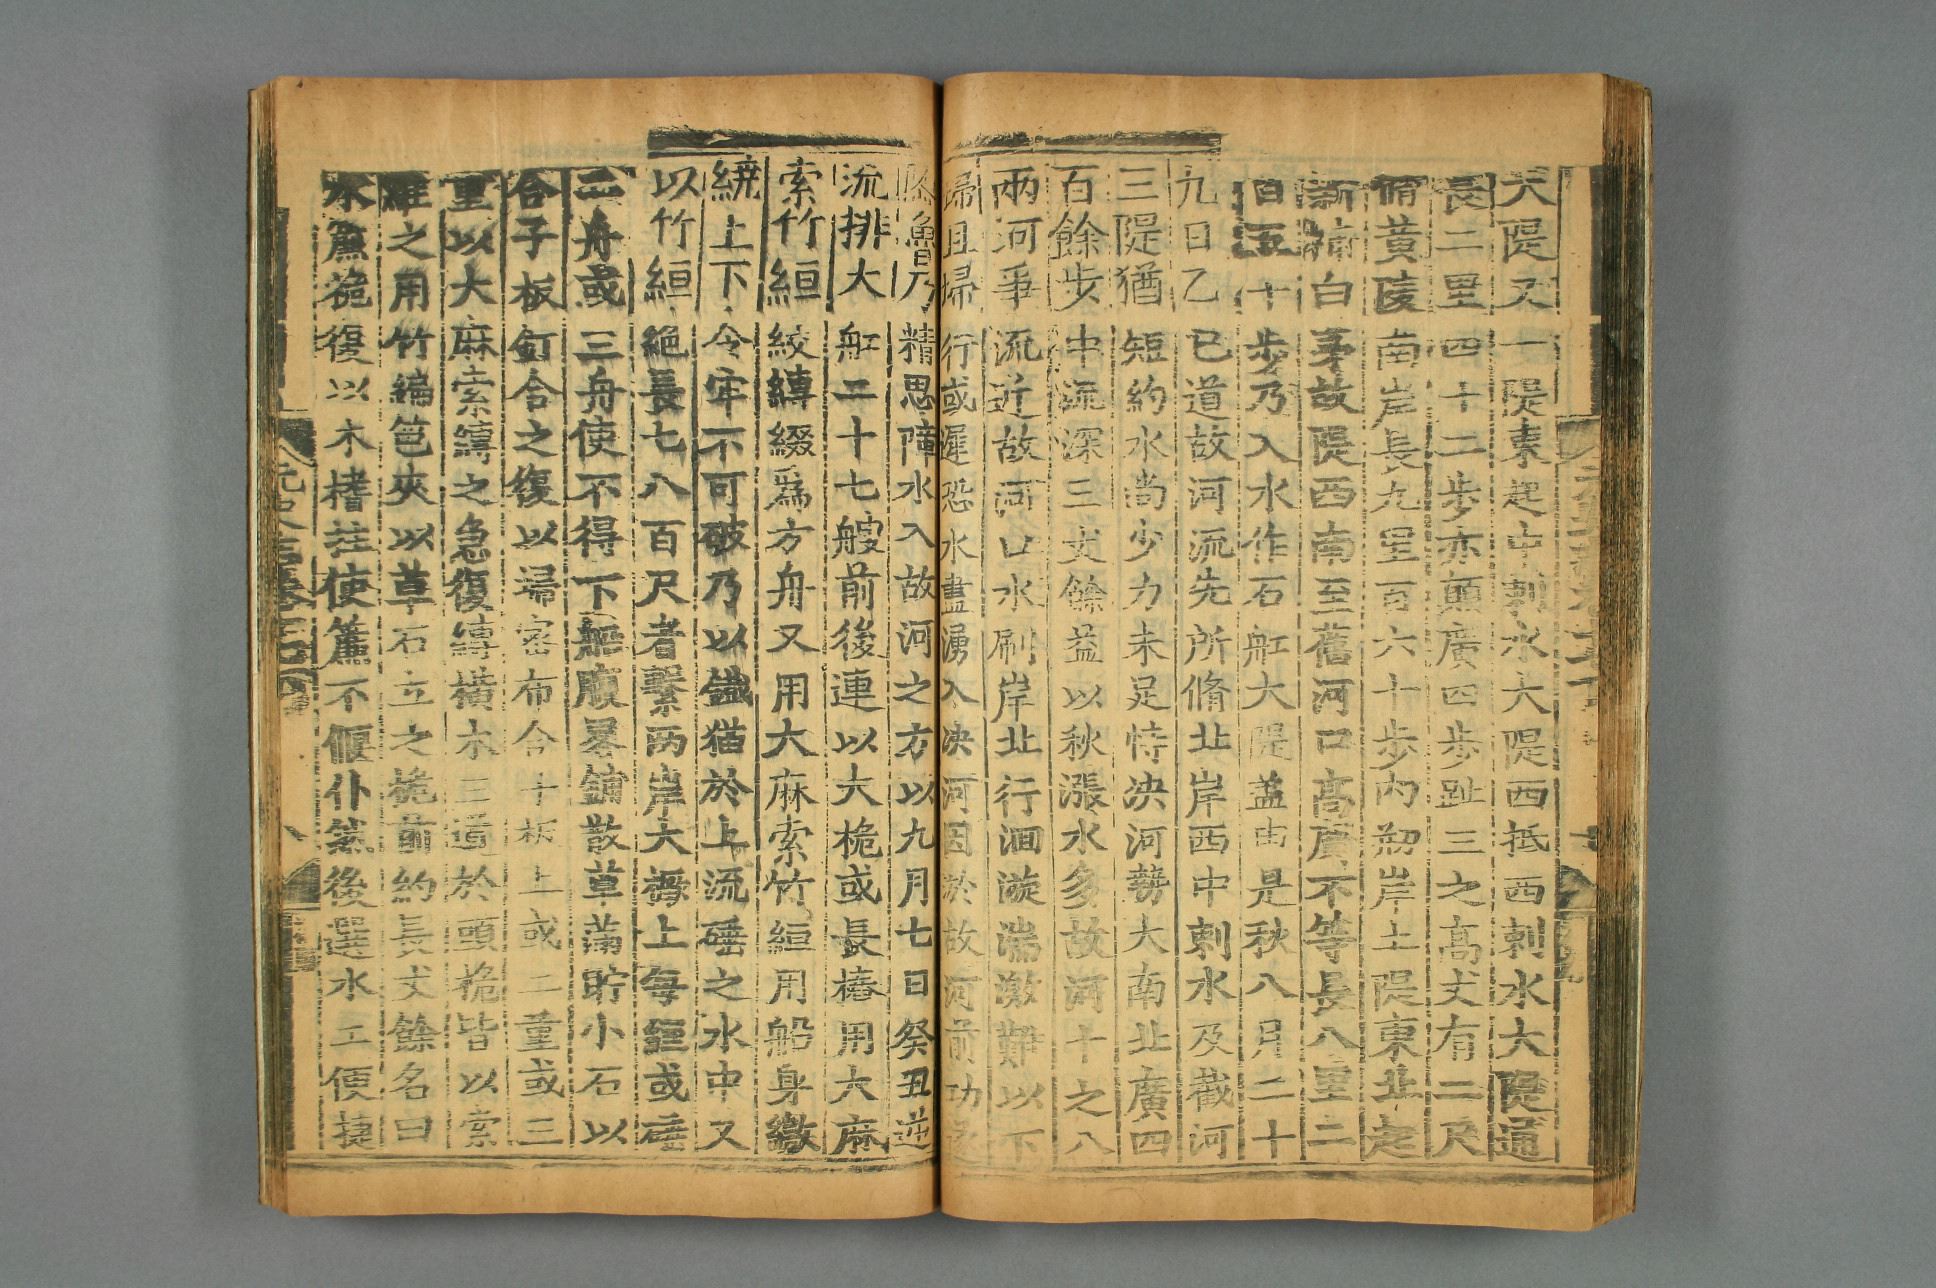 大隄又一隄東起中剌水大隄西抵西剌水大隄通
長二里四十二步亦顛廣四步趾三之高丈有二尺
脩黃陵南岸長九里百六十步內剏岸土隄東北起
新補白茅故隄西南至舊河口高廣不等長八里二
百五十步乃入水作石舡大隄盖由是秋八月二十
九日乙巳道故河流先所脩北岸西中剌水及截河
三隄猶短約水尚少力未足恃决河勢大南北廣四
百餘步中流深三丈餘益以秋漲水多故河十之八
兩河爭流近故河口水刷岸北行洄漩湍激難以下
埽且埽行或遲恐水盡湧入决河因淤故河前功遂
隳魯乃精思障水入故河之方以九月七日癸丑逆
流排大舡二十七艘前後連以大桅或長樁用大麻
索竹絙絞縳綴爲方舟又用大麻索竹絙用船身繳
繞上下令牢不可破乃以鐵猫於上流硾之水中又
以竹絙絶長七八百尺者繫兩岸大橛上每絙或硾
二舟或三舟使不得下船腹畧鋪散草滿貯小石以
合子板釘合之復以埽密布合子板上或二重或三
重以大麻索縳之急復縳橫木三道於頭桅皆以索
維之用竹編笆夾以草石立之桅前約長丈餘名曰
水簾桅復以木楮拄使簾不偃仆然後選水工便捷